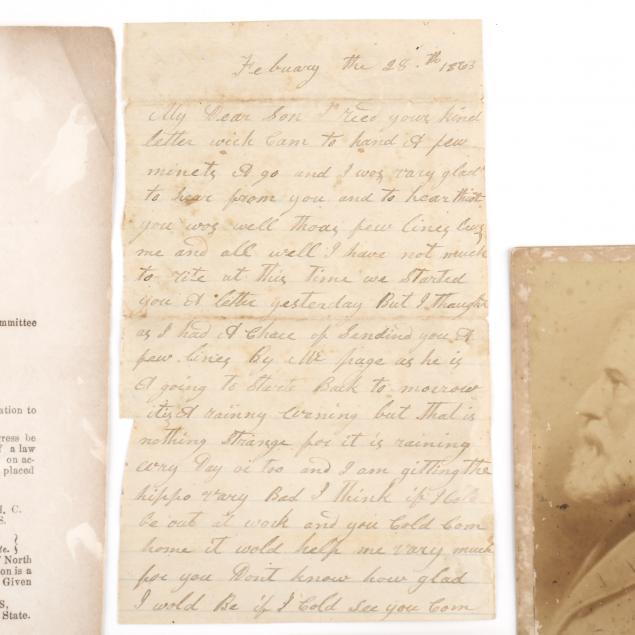 Febuary the 28.th 1863
My Dear Son I recd your kind
letter wich Cam to hand A few
minets A go and I wos vary glad
to hear from you and to hear that
you wos well thoas few lines levs
me and all well I have not much
to rite at this time we Started
you A letter yesterday But I though
as I had A Chace of Sendind you A
few lines By Mr page as he is
A going to Starte Back to morrow
it is A rainny Evening but that is
nothing Strange for it is raining
evry Day or too and I am gitting the
hippo vary Bad I think if I Cold
be out at work and you Cold Com
home it wold help me vary much
for you Dont know how glad
I wold Be if I Cold See you Com
mmittee
ation to
gress be
f a law
on ac-
placed
I. C.
S.
te.
North
ion is a
Given
S,
State.